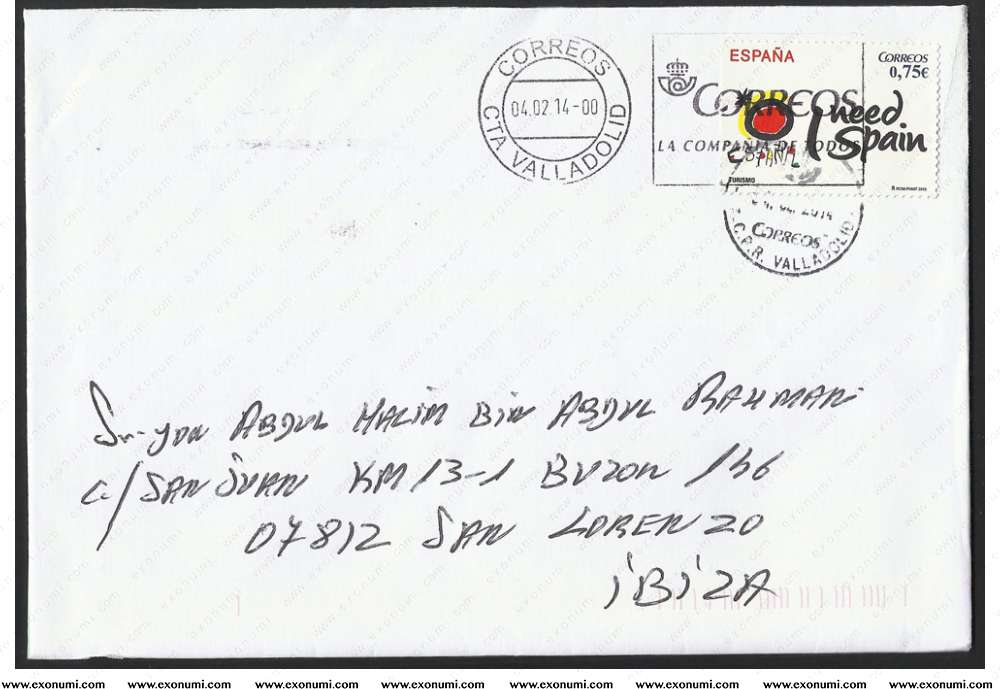 CORREOS
04.02.14-00
CTA VALLADOLID
CORREOS
LA COMPAÑIA DE TODOS
ESPAÑA
CORREOS
0,75€
I need
Spain
ESPAÑA
TURISMO
2014
CORREOS
C.P.R. VALLADOLID
Sr. Don ABDUL HALIM BIN ABDUL RAHMAN
C/ SAN JUAN KM 13-1 BUZON 146
07812 SAN LORENZO
IBIZA
www.exonumi.com www.exonumi.com www.exonumi.com www.exonumi.com www.exonumi.com www.exonumi.com www.exonumi.com www.exonumi.com